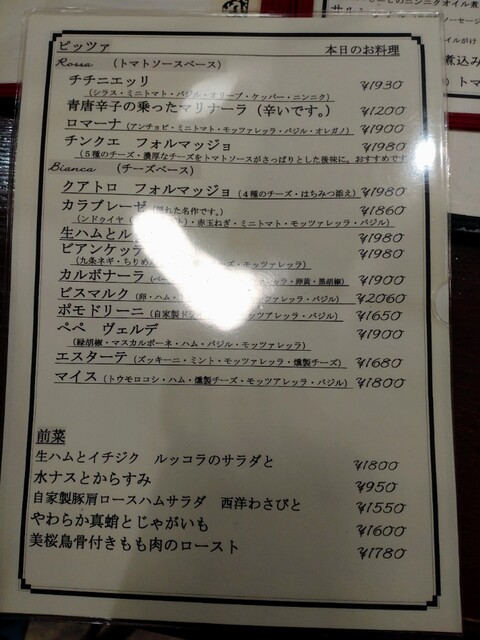 ピッツァ 本日のお料理
Rossa (トマトソースベース)
チチニエッリ ¥1930
(シラス・ミニトマト・バジル・オリーブ・ケッパー・ニンニク)
青唐辛子の乗ったマリナーラ(辛いです。) ¥1200
ロマーナ(アンチョビ・ミニトマト・モッツァレッラ・バジル・オレガノ) ¥1900
チンクエ フォルマッジョ ¥1980
(5種のチーズ・濃厚なチーズをトマトソースがさっぱりとした後味に。おすすめです
Bianca (チーズベース)
クアトロ フォルマッジョ(4種のチーズ・はちみつ添え) ¥1980
カラブレーゼ れた名作です。) ¥1860
(ンドゥイヤ ト)・赤玉ねぎ・ミニトマト・モッツァレッラ・バジル)
生ハムとル ¥1980
ビアンケッ ¥1980
(九条ネギ・ちりめ ーズ・モッツァレッラ)
カルボナーラ(ベー ッツァレッラ・卵黄・黒胡椒) ¥1900
ビスマルク(卵・ハム・ ・モッツァレッラ・バジル) ¥2060
ポモドリーニ(自家製ド モッツァレッラ・バジル) ¥1650
ペペ ヴェルデ ¥1900
(緑胡椒・マスカルポーネ・ハム・バジル・モッツァレッラ)
エスターテ(ズッキーニ・ミント・モッツァレッラ・燻製チーズ) ¥1680
マイス(トウモロコシ・ハム・燻製チーズ・モッツアレッラ・バジル) ¥1800
前菜
生ハムとイチジク ルッコラのサラダと ¥1800
水ナスとからすみ ¥950
自家製豚肩ロースハムサラダ 西洋わさびと ¥1550
やわらか真蛸とじゃがいも ¥1600
美桜鳥骨付きもも肉のロースト ¥1780